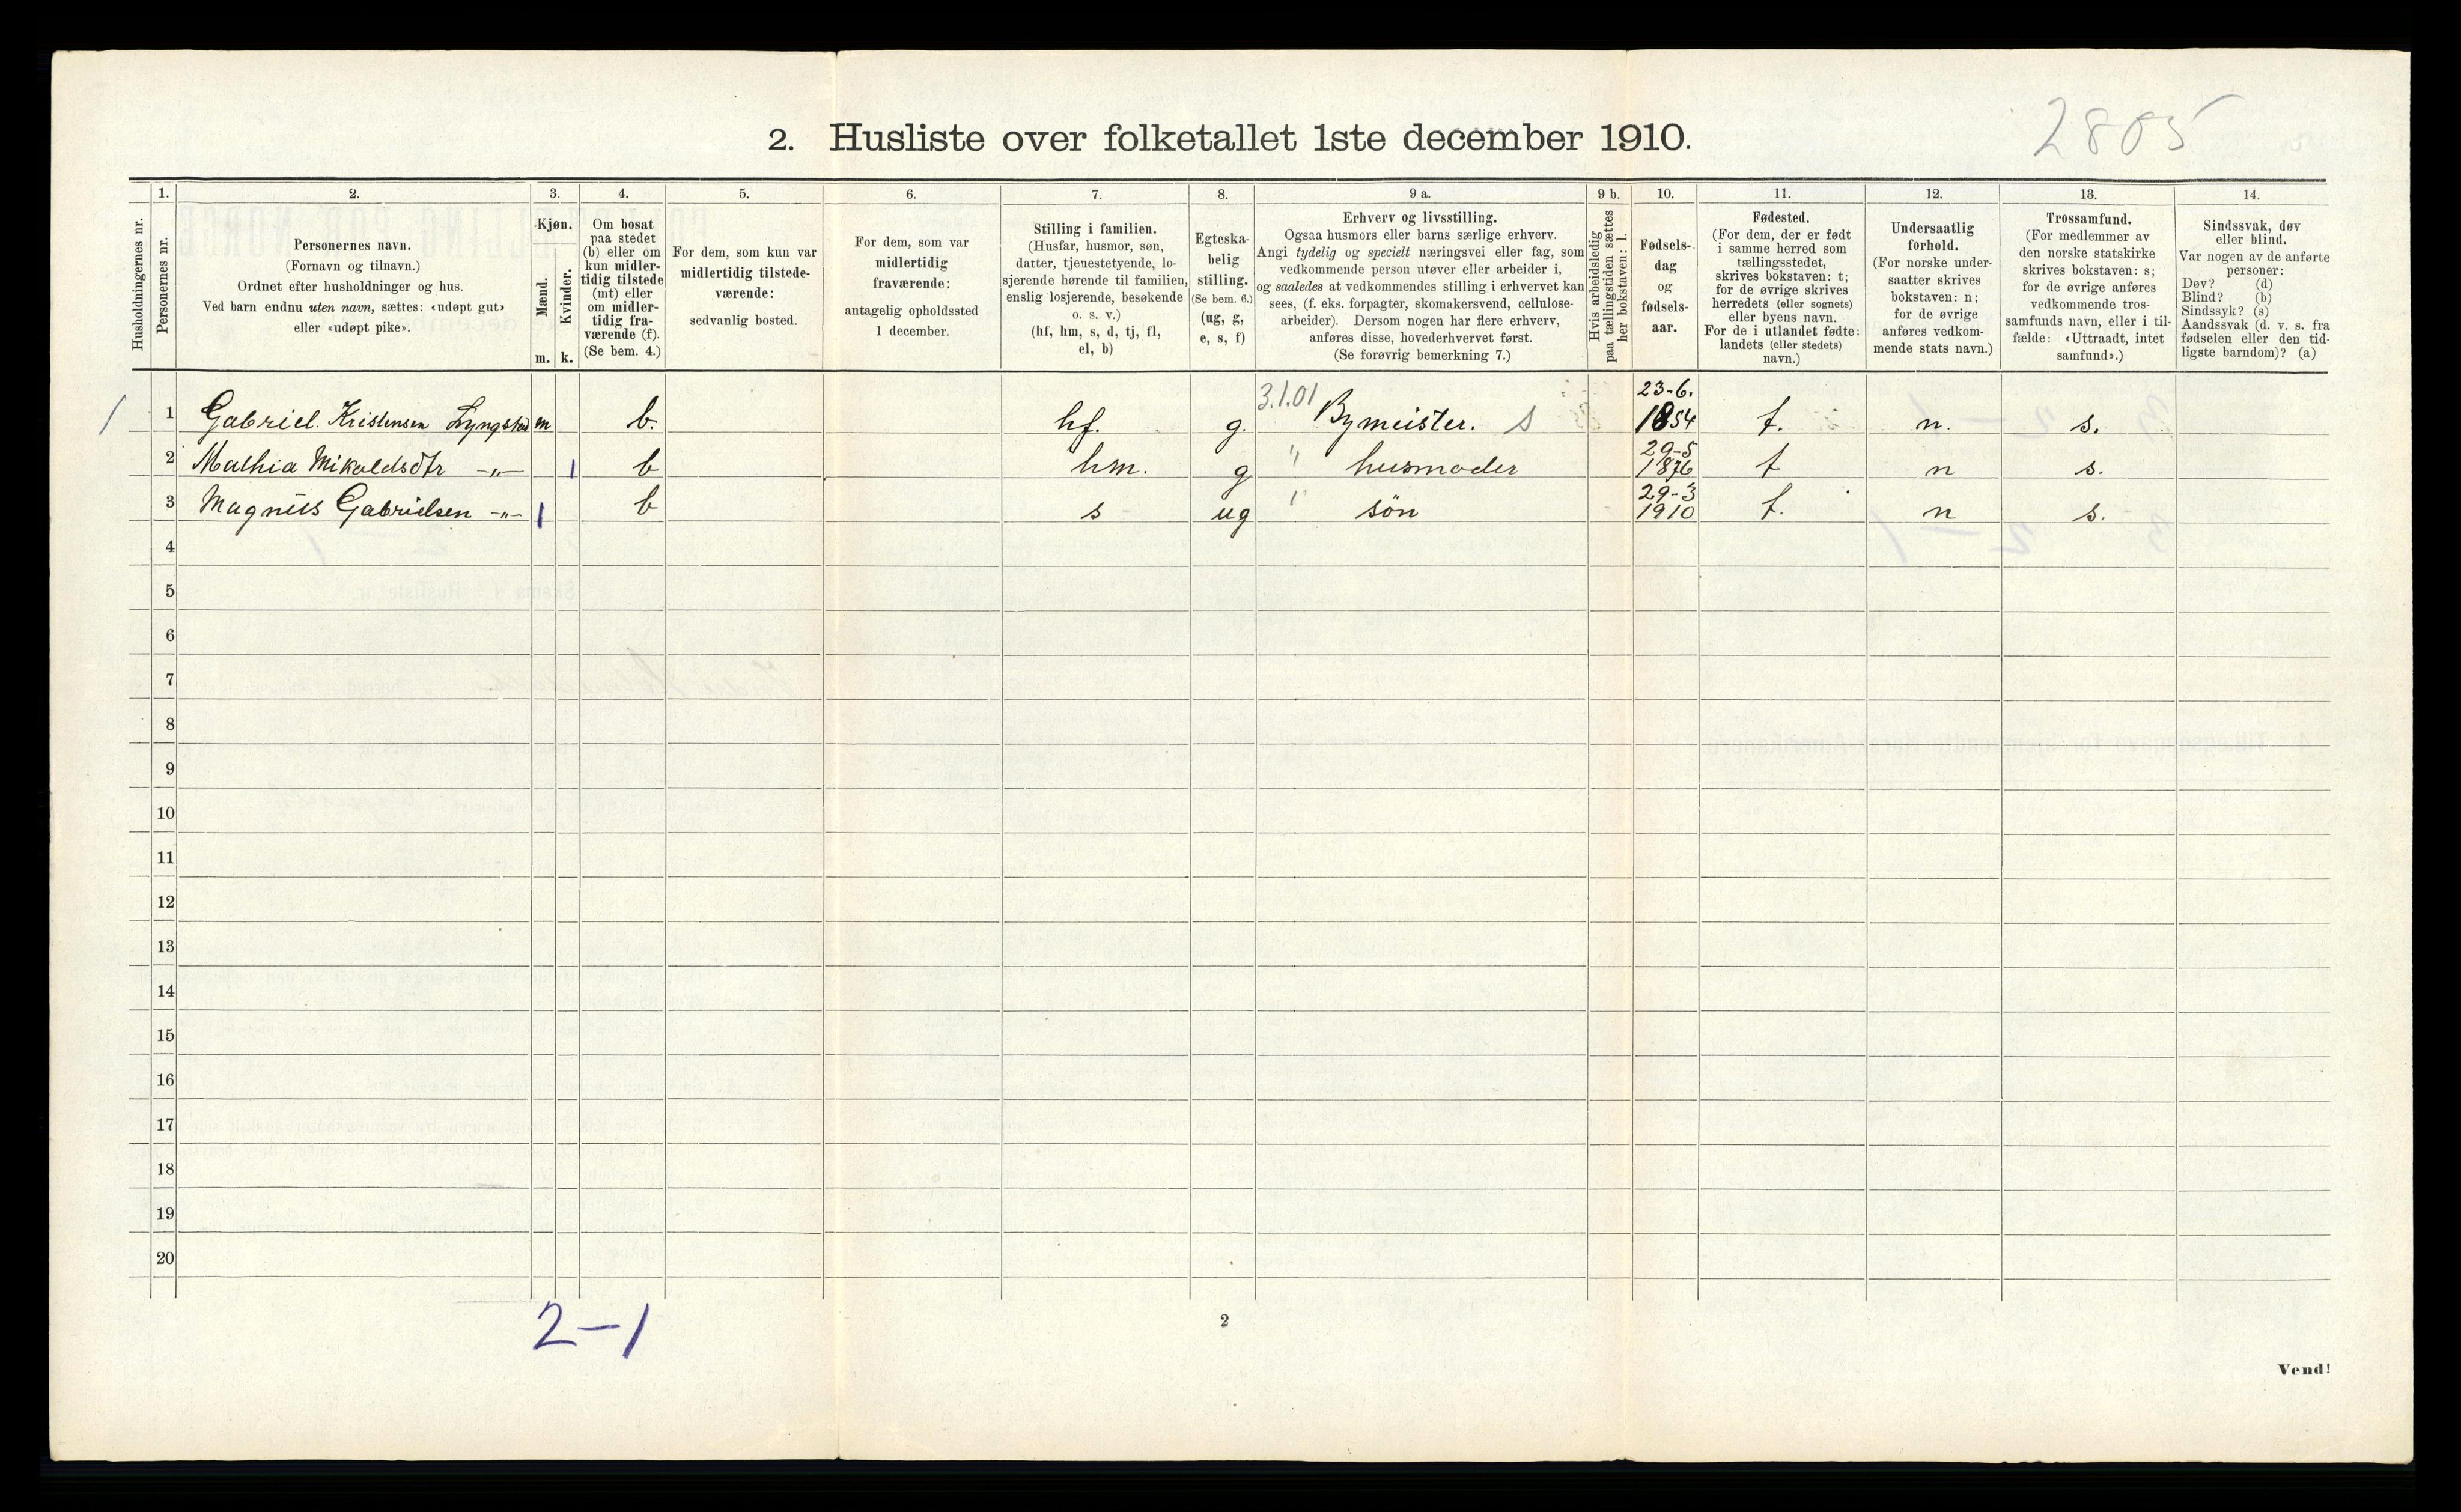 2805
2. Husliste over folketallet 1ste december 1910.
1. 2. 3. 4. 5. 6. 7. 8. 9 a. 9 b. 10. 11. 12. 13. 14.
Husholdningernes nr.
Personernes nr.
Personernes navn.
(Fornavn og tilnavn.)
Ordnet efter husholdninger og hus.
Ved barn endnu uten navn, sættes: «udøpt gut»
eller «udøpt pike».
Kjøn.
Mænd.
Kvinder.
m. k.
Om bosat
paa stedet
(b) eller om
kun midler-
tidig tilstede
(mt) eller
om midler-
tidig fra-
værende (f).
(Se bem. 4.)
For dem, som kun var
midlertidig tilstede-
værende:
sedvanlig bosted.
For dem, som var
midlertidig
fraværende:
antagelig opholdssted
1 december.
Stilling i familien.
(Husfar, husmor, søn,
datter, tjenestetyende, lo-
sjerende hørende til familien,
enslig losjerende, besøkende
o. s. v.)
(hf, hm, s, d, tj, fl,
el, b)
Egteska-
belig
stilling.
(Se bem. 6.)
(ug, g,
e, s, f)
Erhverv og livsstilling.
Ogsaa husmors eller barns særlige erhverv.
Angi tydelig og specielt næringsvei eller fag, som
vedkommende person utøver eller arbeider i,
og saaledes at vedkommendes stilling i erhvervet kan
sees, (f. eks. forpagter, skomakersvend, cellulose-
arbeider). Dersom nogen har flere erhverv,
anføres disse, hovederhvervet først.
(Se forøvrig bemerkning 7.)
Hvis arbeidsledig
paa tællingstiden sættes
her bokstaven: l.
Fødsels-
dag
og
fødsels-
aar.
Fødested.
(For dem, der er født
i samme herred som
tællingsstedet,
skrives bokstaven: t;
for de øvrige skrives
herredets (eller sognets)
eller byens navn.
For de i utlandet fødte:
landets (eller stedets)
navn.)
Undersaatlig
forhold.
(For norske under-
saatter skrives
bokstaven: n;
for de øvrige
anføres vedkom-
mende stats navn.)
Trossamfund.
(For medlemmer av
den norske statskirke
skrives bokstaven: s;
for de øvrige anføres
vedkommende tros-
samfunds navn, eller i til-
fælde: «Uttraadt, intet
samfund».)
Sindssvak, døv
eller blind.
Var nogen av de anførte
personer:
Døv? (d)
Blind? (b)
Sindssyk? (s)
Aandssvak (d. v. s. fra
fødselen eller den tid-
ligste barndom)? (a)
1 1 Gabriel Kristensen Lyngstad m b. hf. g. 3.1.01 Bymeister. s 23-6. 1854 t. n. s.
2 Mathia Mikaldsdtr -„- 1 b hm. g " husmoder 29-5 1876 t n s.
3 Magnus Gabrielsen -„- 1 b s ug " søn 29-3 1910 t. n s.
4
5
6
7
8
9
10
11
12
13
14
15
16
17
18
19
20
2-1
2
Vend!